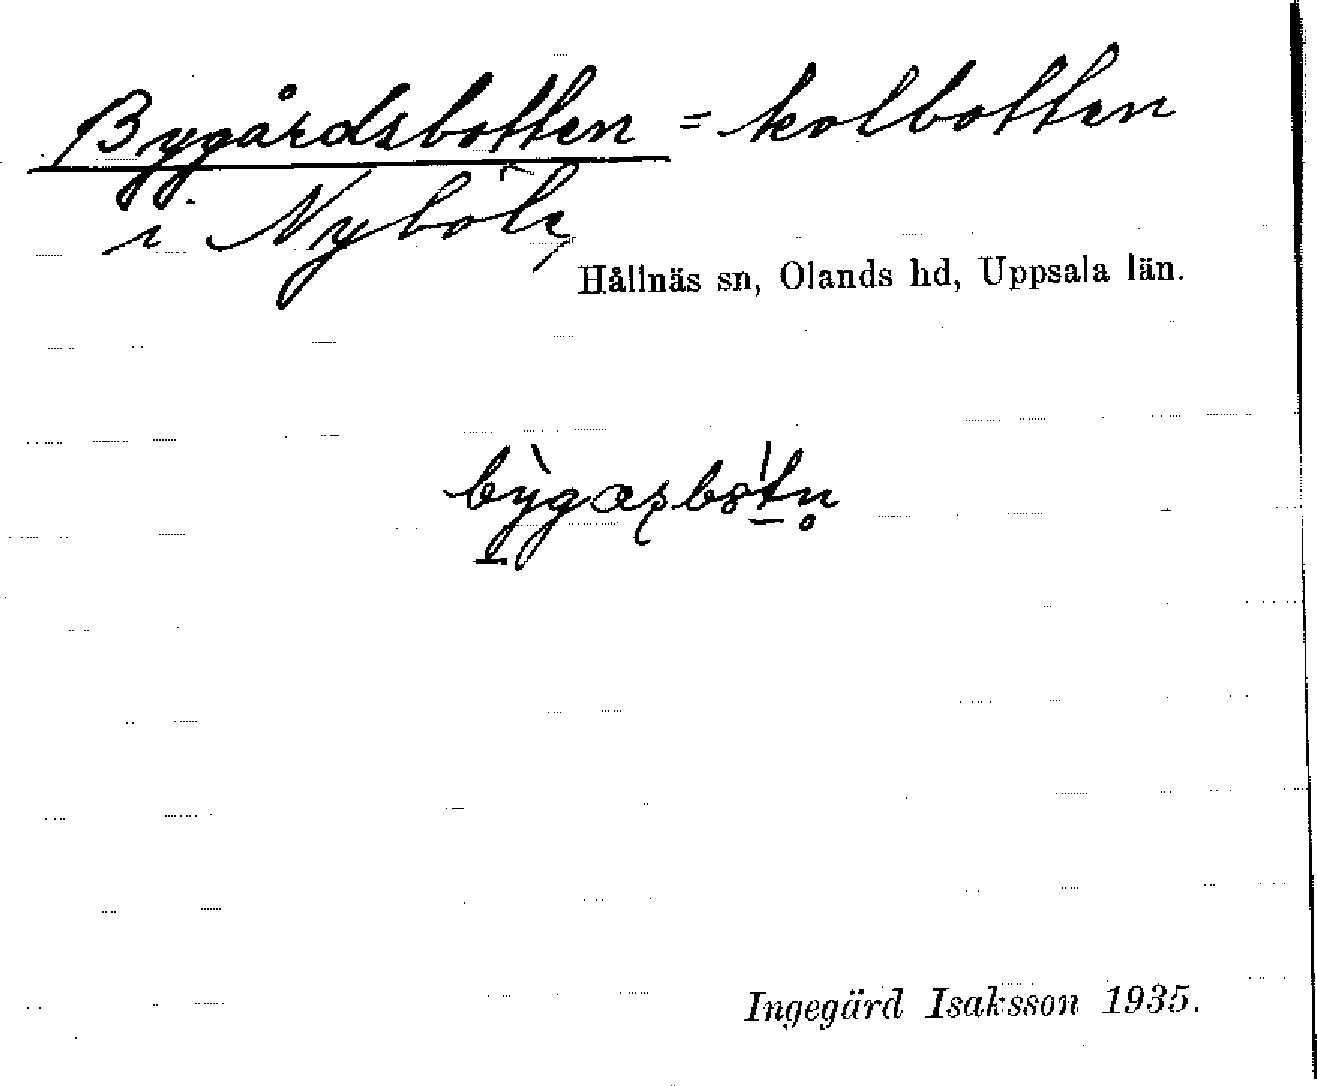 Bygårdsbotten = kolbotten
i Nyböle,
Hållnäs sn, Olands hd, Uppsala län.
Ingegärd Isaksson 1935.